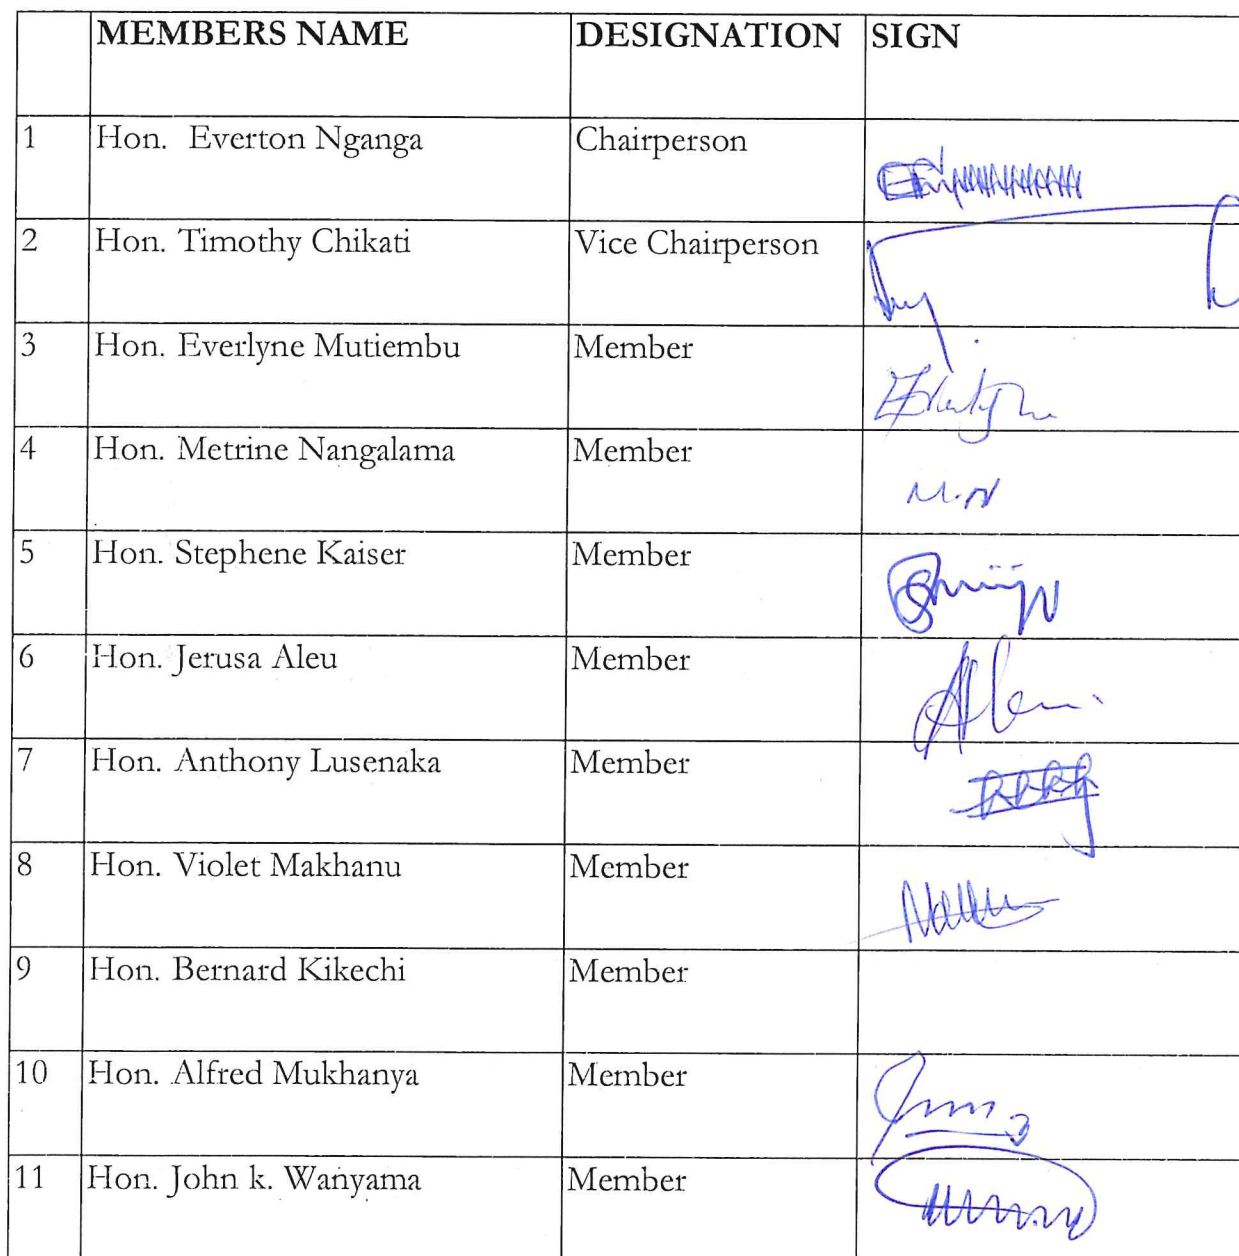 MEMBERS NAME DESIGNATION SIGN
1 Hon. Everton Nganga Chairperson
2 Hon. Timothy Chikati Vice Chairperson
3 Hon. Everlyne Mutiembu Member
4 Hon. Metrine Nangalama Member M.N
5 Hon. Stephene Kaiser Member
6 Hon. Jerusa Aleu Member
7 Hon. Anthony Lusenaka Member
8 Hon. Violet Makhanu Member
9 Hon. Bernard Kikechi Member
10 Hon. Alfred Mukhanya Member
11 Hon. John k. Wanyama Member